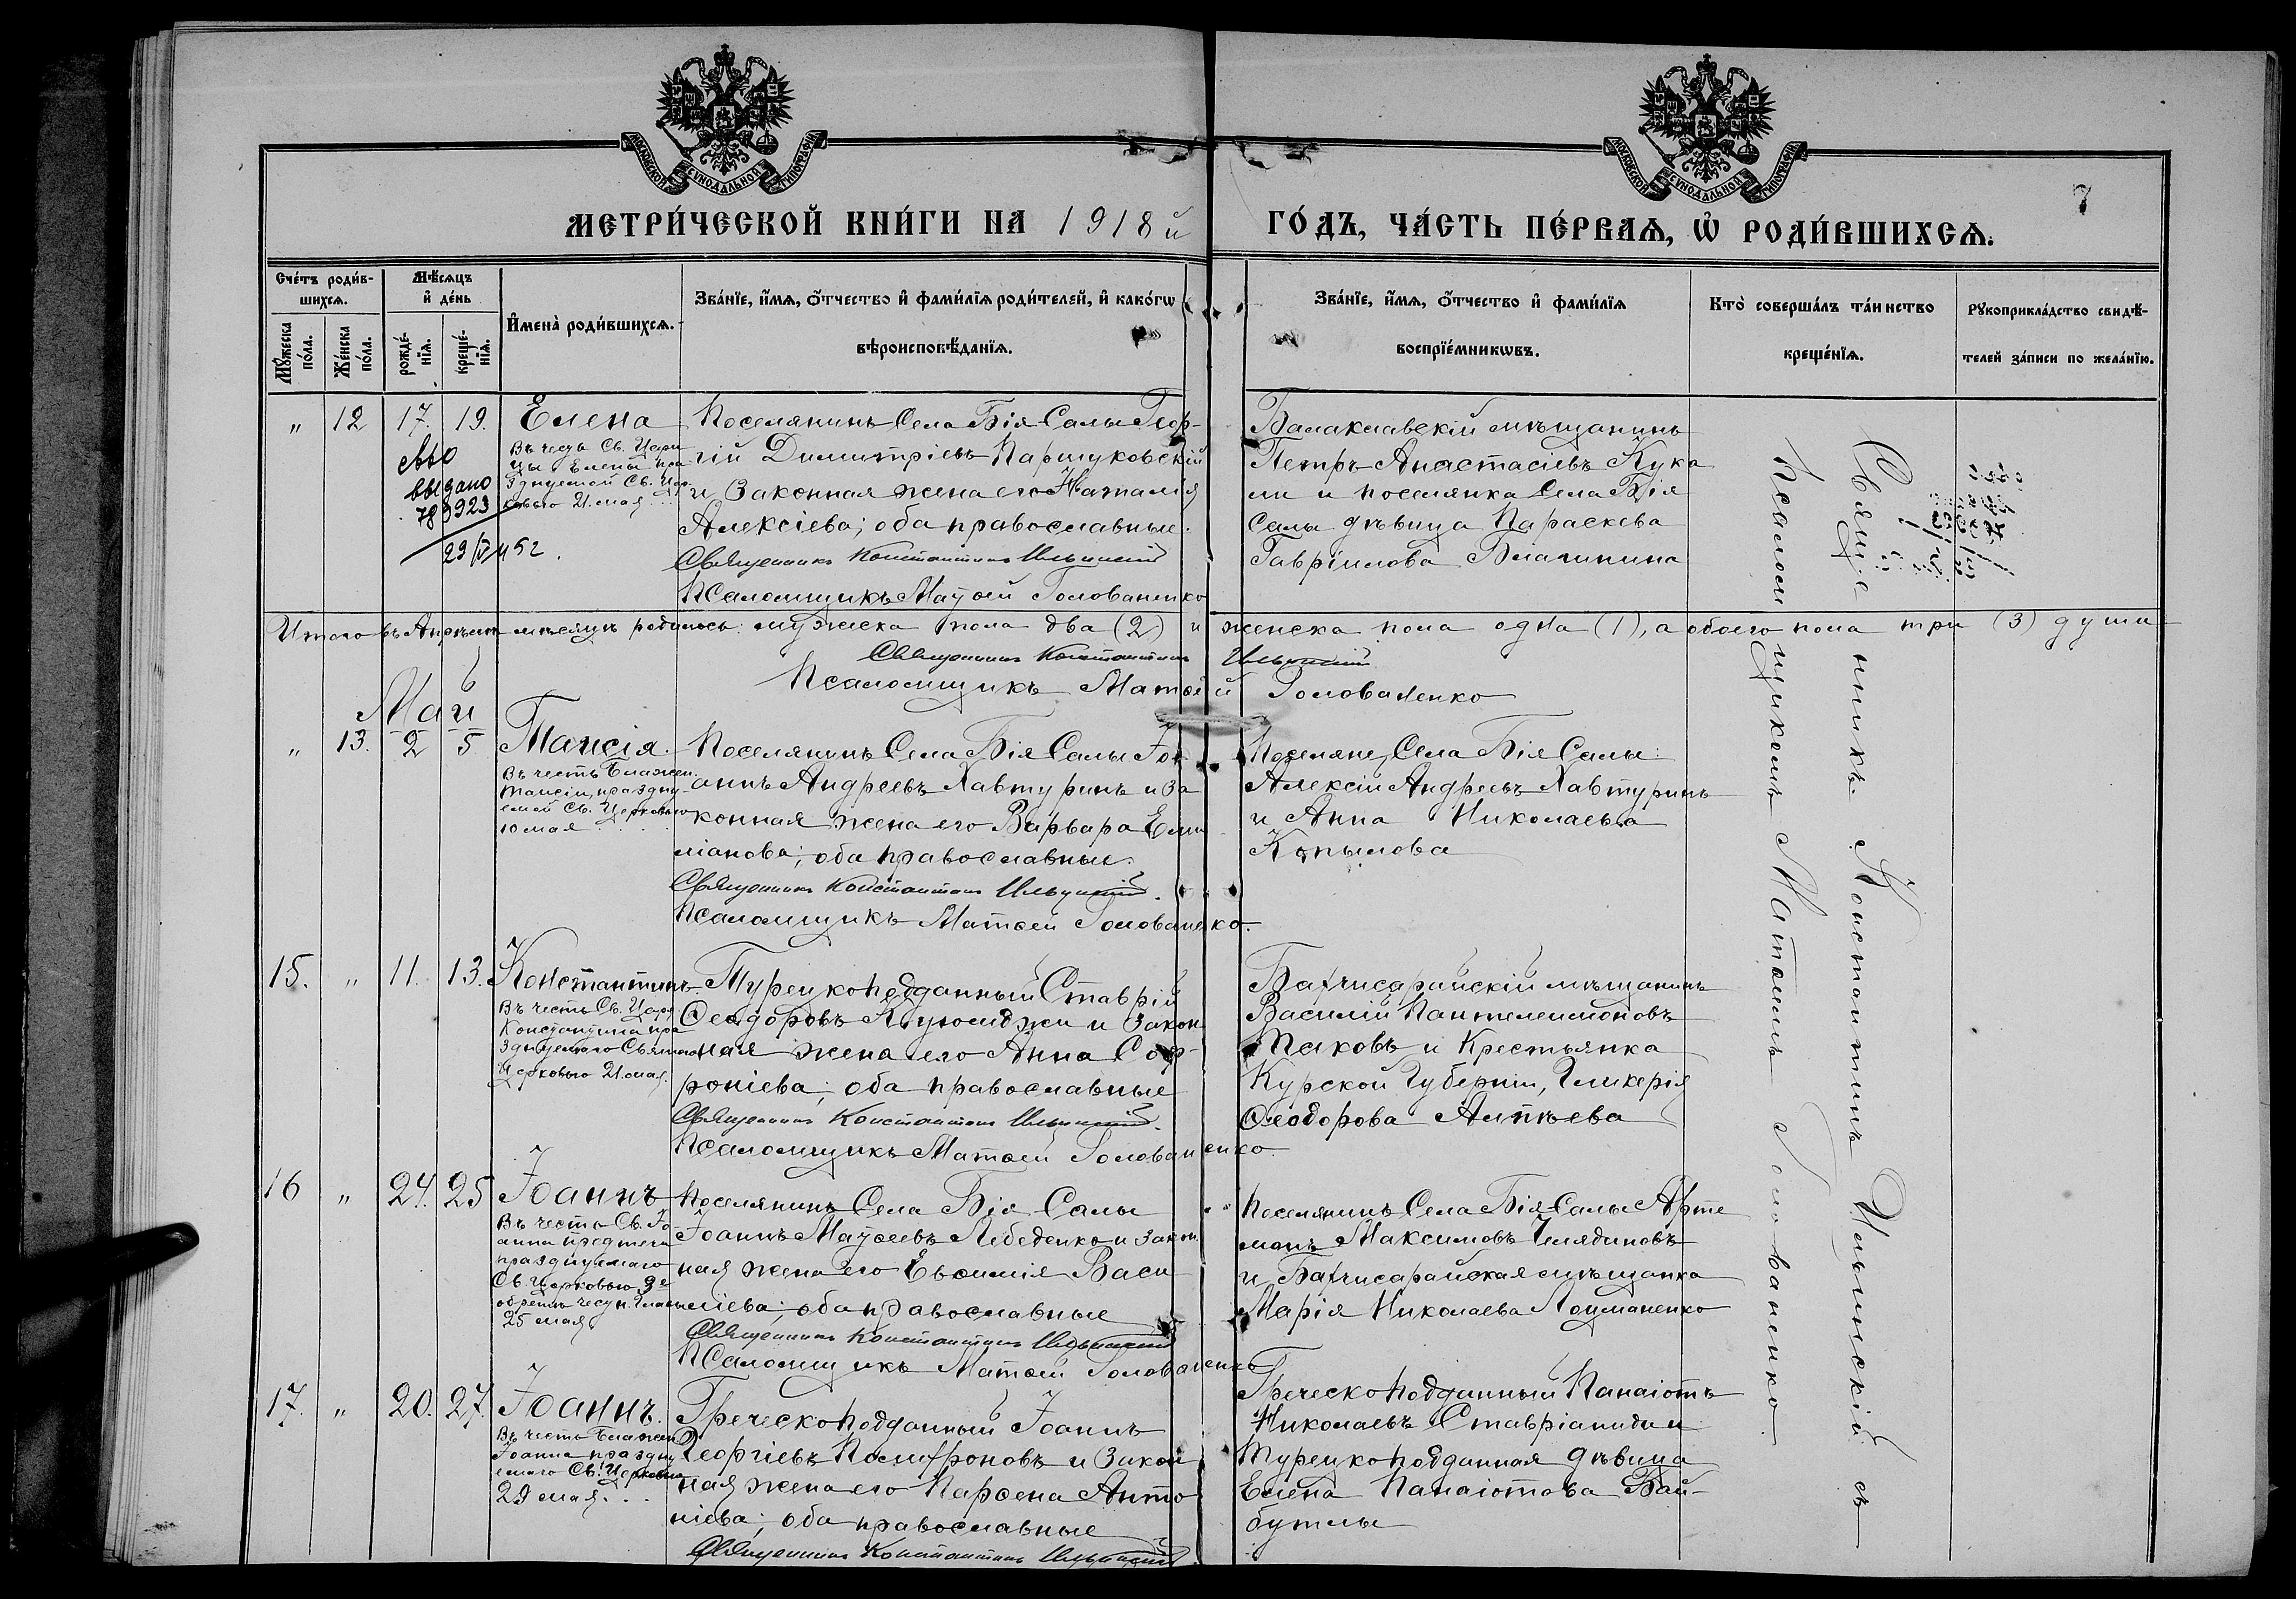 МОСКОВСКОЙ СѴНОДАЛЬНОЙ ТИПОГРАФІИ
МОСКОВСКОЙ СѴНОДАЛЬНОЙ ТИПОГРАФІИ
7
МЕТРИ́ЧЕСКОЙ КНИ́ГИ НА 1918й ГО́ДЪ, ЧА́СТЬ ПЕ́РВАѦ, Ѡ РОДИ́ВШИХСѦ.
Сче́тъ роди́в-
шихсѧ.
Мꙋ́жеска по́ла.
Же́нска по́ла.
Мѣ́сѧцъ
и҆ де́нь
рожде́-
нїѧ.
креще́-
нїѧ.
И҆мена̀ роди́вшихсѧ.
Зва́нїе, и҆́мѧ, ѻ҆́тчество и҆ фами́лїѧ роди́телей, и҆ како́гѡ
вѣроисповѣ́данїѧ.
Зва́нїе, и҆́мѧ, ѻ҆́тчество и҆ фами́лїѧ
воспрїе́мникѡвъ.
Кто̀ соверша́лъ та́инство
креще́нїѧ.
Рꙋкоприкла́дство свидѣ́-
телей за́писи по жела́нїю.
" 12 17. 19. Елена
Въ честь Св. Цари
цы Елены пра
зднуемой Св. Цер
ковью 21. мая
св-во
выдано
789923
29/IV 1952.
Поселянинъ Села Бія Салы Геор-
гій Димитріевъ Паршуковскій
и Законная жена его Наталія
Алексіева; оба православные.
Священникъ Константинъ Ильинскій
Псаломщикъ Матѳей Голованенко
Балаклавскій мѣщанинъ
Петръ Анастасіевъ Кука
ли и поселянка Села Бія
Салы дѣвица Параскева
Гавріилова
Итого въ Апрѣлѣ мѣсяцѣ родилось: мужска пола два (2) и женска пола одна (1), а обоего пола три (3) души
Священникъ Константинъ Ильинскій
Псаломщикъ Матѳей Голованенко
Май
" 13. 2 5 Таисія.
Въ честь Блажен.
Таисіи, праздну-
емой Св. Церковью
10 мая
Поселянинъ Села Бія Салы Іо-
аннъ Андреевъ Хавтуринъ и за
конная жена его Варвара Еми
ліанова; оба православные.
Священникъ Константинъ Ильинскій.
Псаломщикъ Матѳей Голованенко.
Поселяне Села Бія Салы:
Алексій Андреевъ Хавтуринъ
и Анна Николаева
Копылова
15. " 11. 13. Константинъ.
Въ честь Св. Царя
Константина пра
зднуемаго Святою
Церковью 21. мая.
Турецкоподданный Ставрій
Ѳеодоровъ и Закон
ная жена его Анна Соф-
роніева; оба православные
Священникъ Константинъ Ильинскій.
Псаломщикъ Матѳей Голованенко
Бахчисарайскій мѣщанинъ
Василій Пантелеимоновъ
и Крестьянка
Курской Губерніи, Гликерія
Ѳеодорова
16 " 24. 25 Іоаннъ
Въ честь Св. Іо-
анна предтечи
празднуемаго
Св. Церковью 3е
обрѣт. честн. главы
25 мая
Поселянинъ Села Бія Салы
Іоаннъ Матѳеевъ Лебеденко и закон
ная жена его Евѳимія Васи
ліева; оба православные
Священникъ Константинъ Ильинскій
Псаломщикъ Матѳей Голованенко
Поселянинъ Села Бія-Салы Арте
монъ Максимовъ Челядиновъ
и Бахчисарайская мѣщанка
Марія Николаева Лоцманенко
17. " 20. 27. Іоаннъ.
Въ честь Блажен
Іоанна праздну
емаго Св. Церковью
29 мая.
Греческоподданный Іоаннъ
Георгіевъ и Закон
ная жена его Парѳена Анто
ніева; оба православные
Священникъ Константинъ Ильинскій
Греческоподданный Панаіотъ
Николаевъ Ставріаниди и
Турецкоподданная дѣвица
Елена Панаіотова Бай-
бутлы
Священникъ Константинъ Ильинскій съ
Псаломщикомъ Матѳеемъ Голованенко.